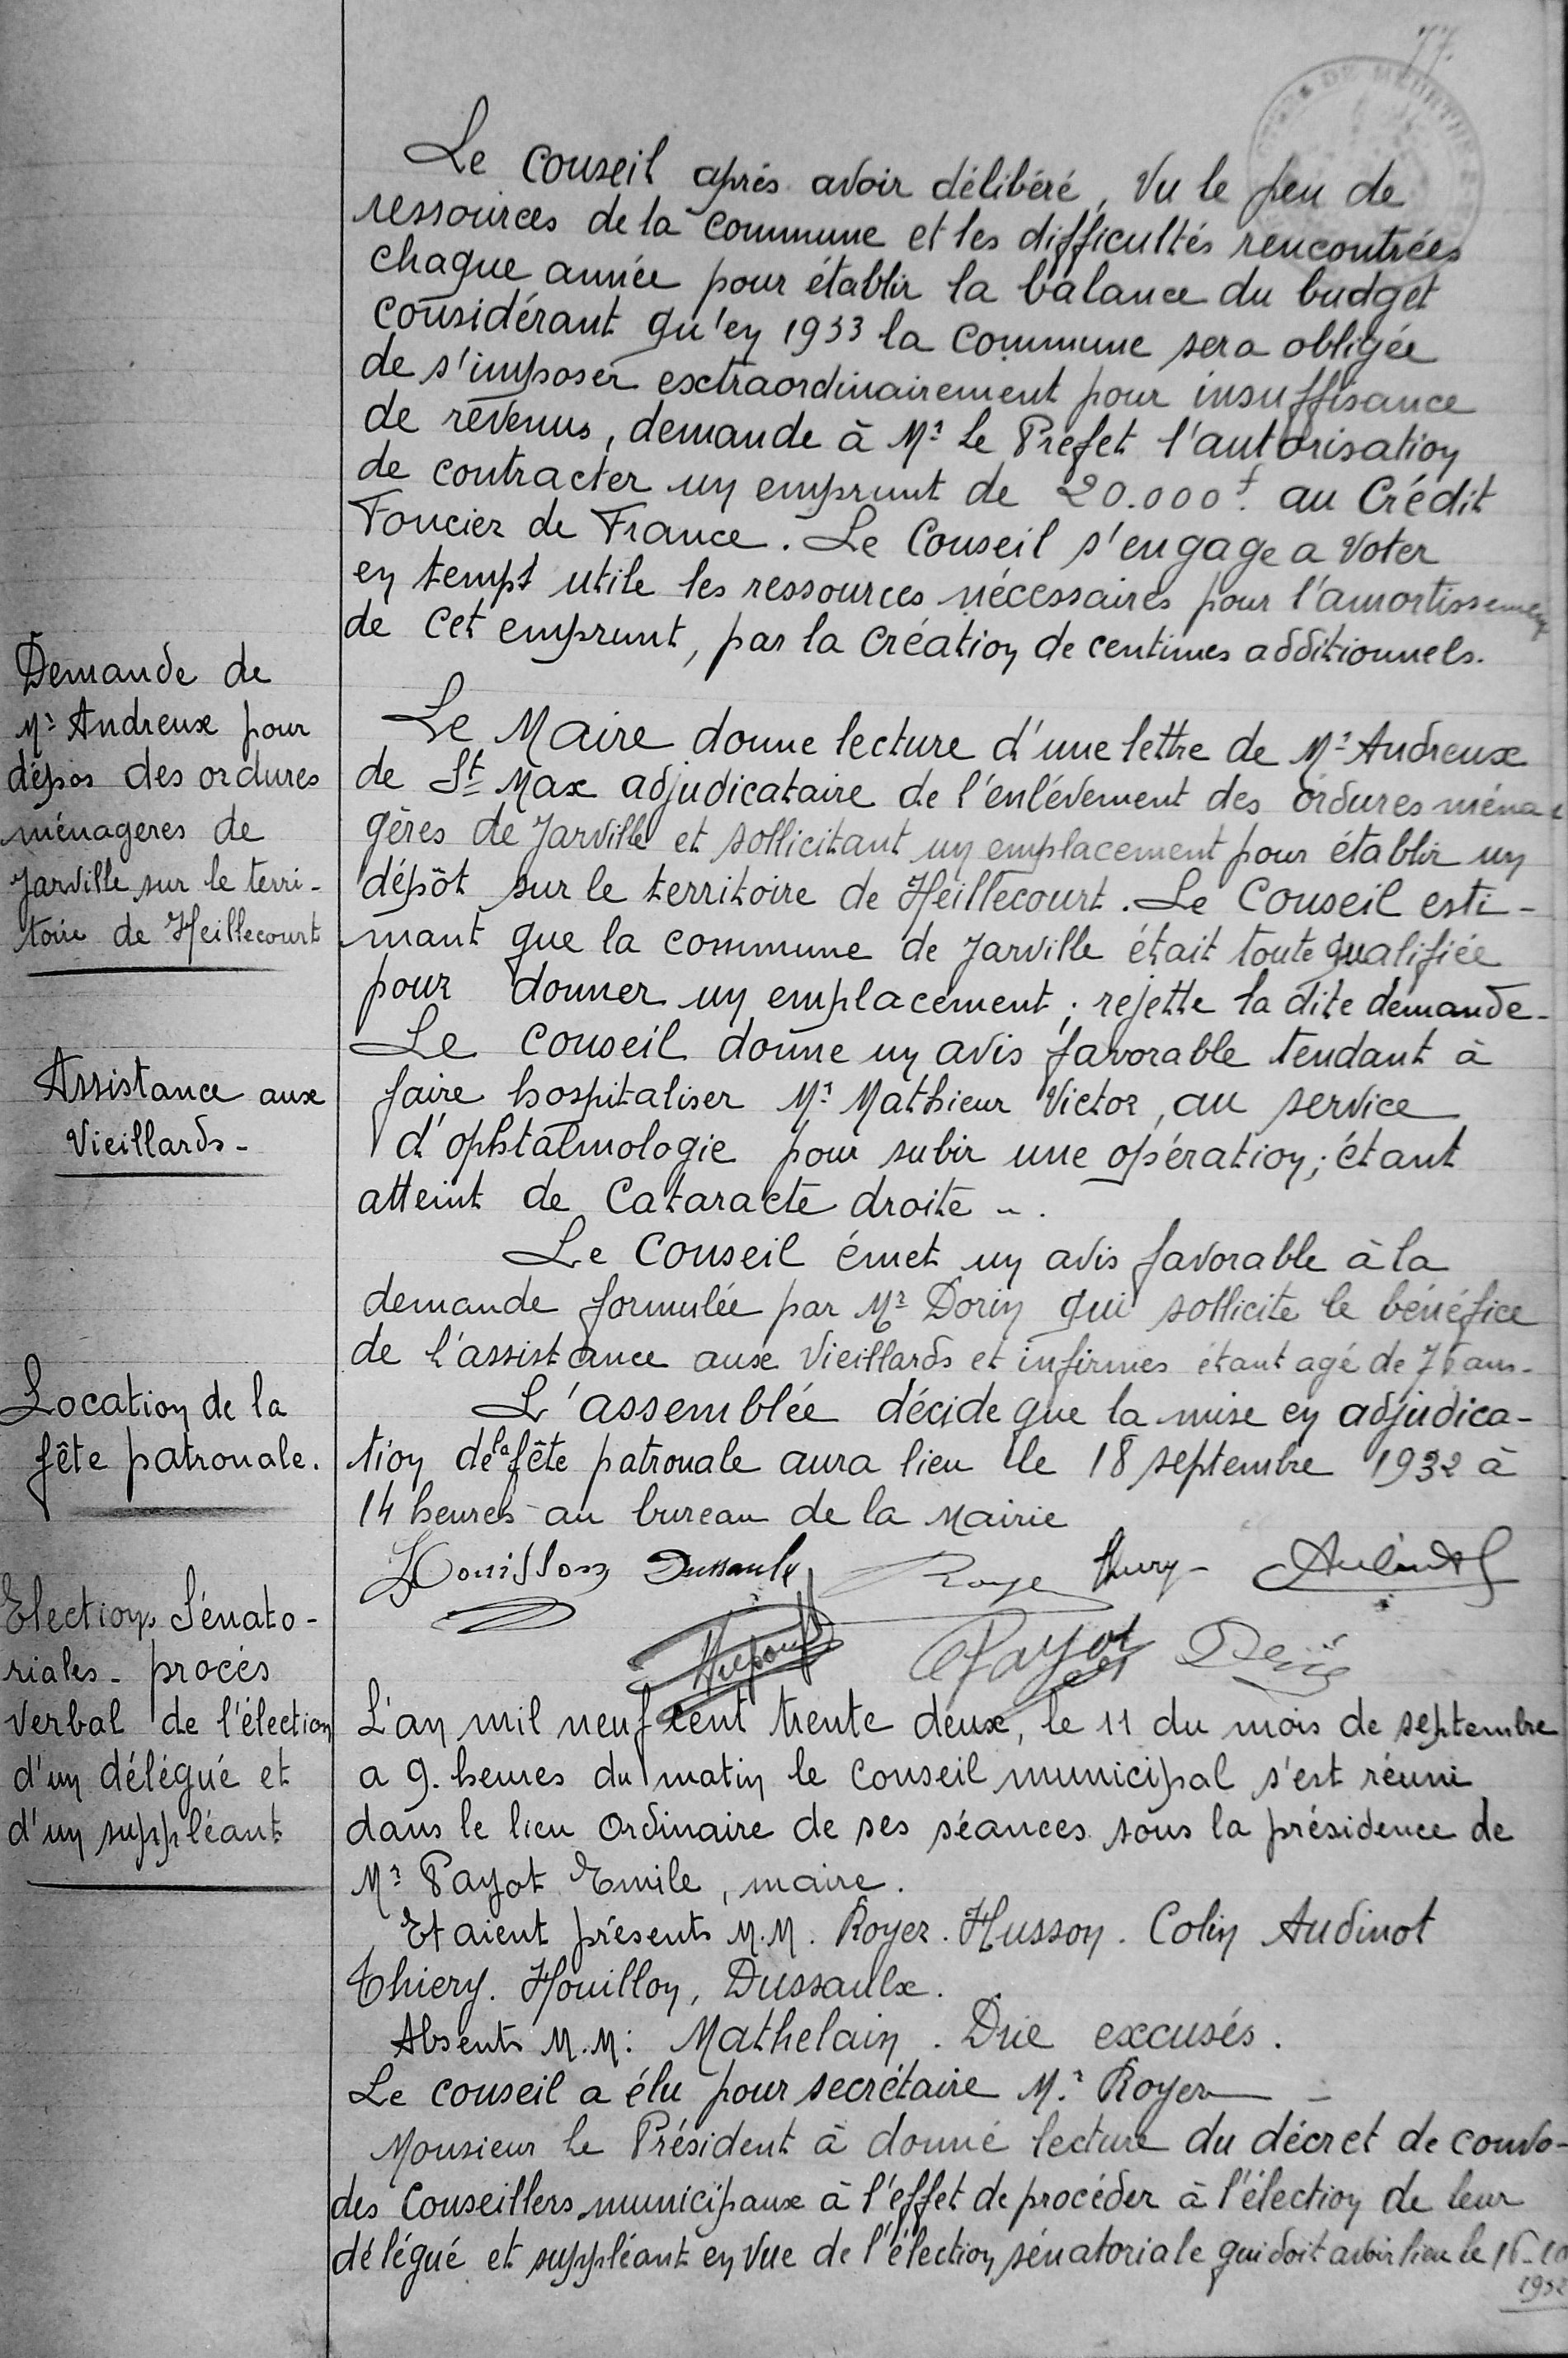 77.
Le Conseil après avoir délibéré, Vu le peu de
ressources de la Commune et les difficultés rencontrées
chaque année pour établir la balance du budget
considérant qu'en 1933 la Commune sera obligée
de s'imposer exctraordinairement pour insuffisance
de revenus, demande à Mr Le Préfet l'autorisation
de contracter un emprunt de 20.000f. au Crédit
Foncier de France. Le Conseil s'engage a voter
en tempt utile les ressources nécessaires pour l'amortissement
de cet emprunt, par la Création de centimes additionnels.
Demande de
Mr Andreux pour
dépos des ordures
ménageres de
Jarville sur le terri-
toire de Heillecourt
Le Maire donne lecture d'une lettre de Mr Andreux
de St Max adjudicataire de l'enlévement des ordures ména-
gères de Jarville et sollicitant un emplacement pour établir un
dépôt sur le territoire de Heillecourt. Le Conseil esti-
mant que la commune de Jarville était toute qualifiée
pour donner un emplacement; rejette la dite demande.
Assistance aux
Vieillards-
Le Conseil donne un avis favorable tendant à
faire hospitaliser Mr Mathieur Victor, au service
d'ophtalmologie pour subir une opération; étant
atteint de Cataracte droite -.
Le Conseil émet un avis favorable à la
demande formulée par Mr Dorin qui sollicite le bénéfice
de l'assistance aux Vieillards et infirmes étant agé de ans-
Location de la
fête patronale.
L'assemblée décide que la mise en adjudica-
tion de la fête patronale aura lieu le 18 septembre 1932 à
14 heures au bureau de la Mairie
Houillon Dussaulx Royer Thiery
Payot
Elections Sénato-
riales- procès
verbal de l'élection
d'un délégué et
d'un suppléant
L'an mil neuf cent trente deux, le 11 du mois de septembre
a 9. heures du matin le Conseil municipal s'est réuni
dans le lieu Ordinaire de ses séances sous la présidence de
Mr Payot Emile, maire.
Etaient présents M.M. Royer. Husson. Colin Audinot
Thiery. Houillon, Dussaulx.
Absents M.M: Mathelain. Drie excusés.
Le conseil a élu pour secrétaire Mr Royer
Monsieur le Président à donné lecture du décret de convo-
des Conseillers municipaux à l'effet de procéder à l'élection de leur
délégué et suppléant en vue de l'élection sénatoriale qui doit avoir lieu le 16-10
1932